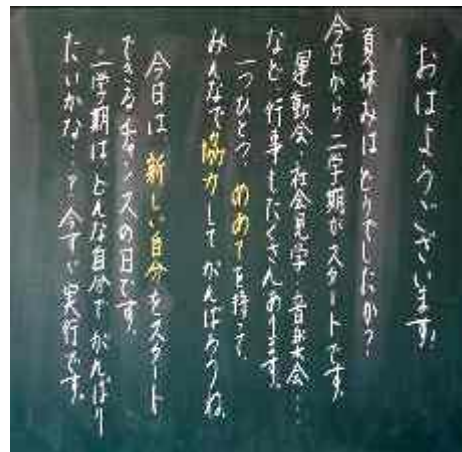 おはようございます。
夏休みはどうでしたか?
今日から二学期がスタートです。
運動会・社会見学・音楽会…
など、行事もたくさんあります。
一つひとつ、めあてを持って
みんなで協力して がんばろうね。
今日は、新しい自分をスタート
できるチャンスの日です。
二学期はどんな自分で がんばり
たいかな…? 今すぐ実行です。